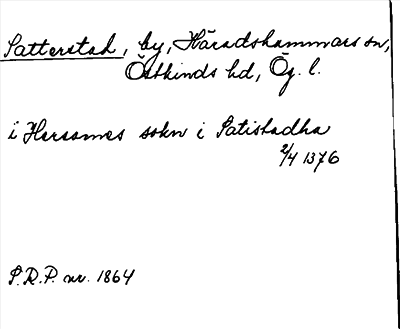 Satterstad, by, Häradshammars sn,
Östkinds hd, Ög. l.
i Hersames sokn i Satistadha
2/4 1376
S.R.P. nr. 1864